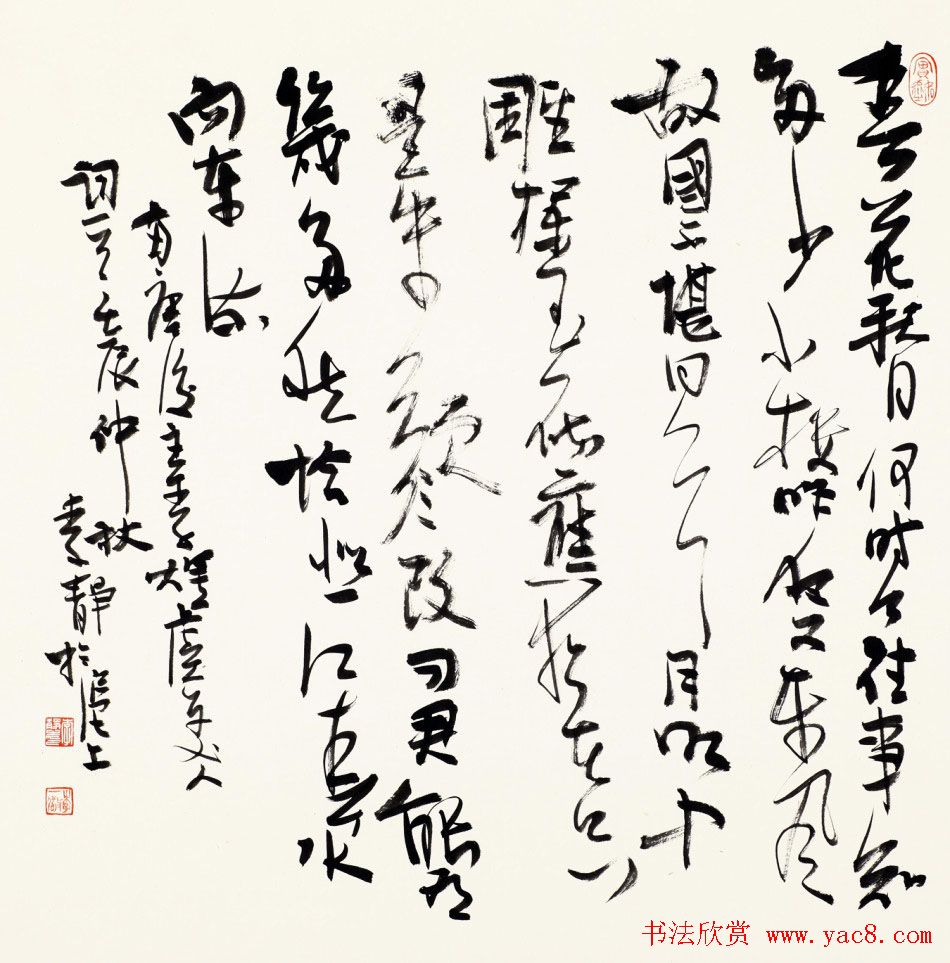 春花秋月何时了往事知
多少小楼昨夜又东风
故國不堪回首月明中
雕欄玉砌應犹在只
是朱颜改问君能有
幾多愁恰似一江春水
向东流
南唐后主李煜虞美人
词一首壬辰仲秋
李静於沪上
书法欣赏 www.yac8.com